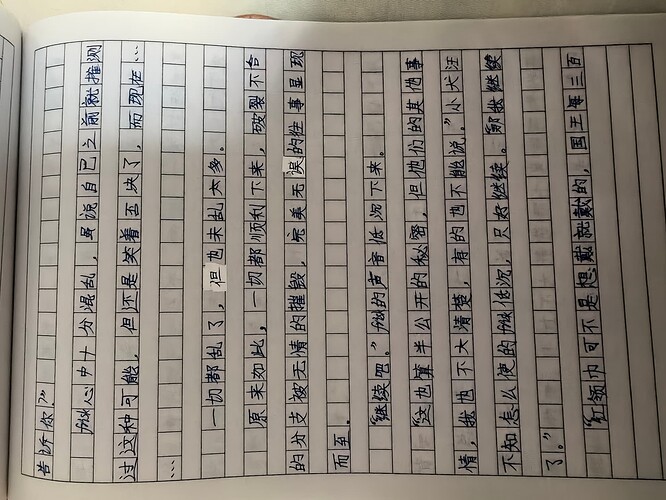 告诉你？”
舢心中十分混乱，虽说自己之前就推测
过这种可能，但还是笑着否决了，而现在…
…
一切都乱了，但也未乱太多。
原来如此，一切都顺利下来，破裂不合
的分支被无情的摧毁，完美无误的往事显现
而至。
“继续吧。”舢的声音低沉下来。
“这也算半公开的秘密，但他们的其他事
情，我也不大清楚，有的也不能说。”小犬汪
不知怎么使的舢低沉，只好继续。“那我继续
了。”
“红领巾可不是想戴就戴的，国王每三百